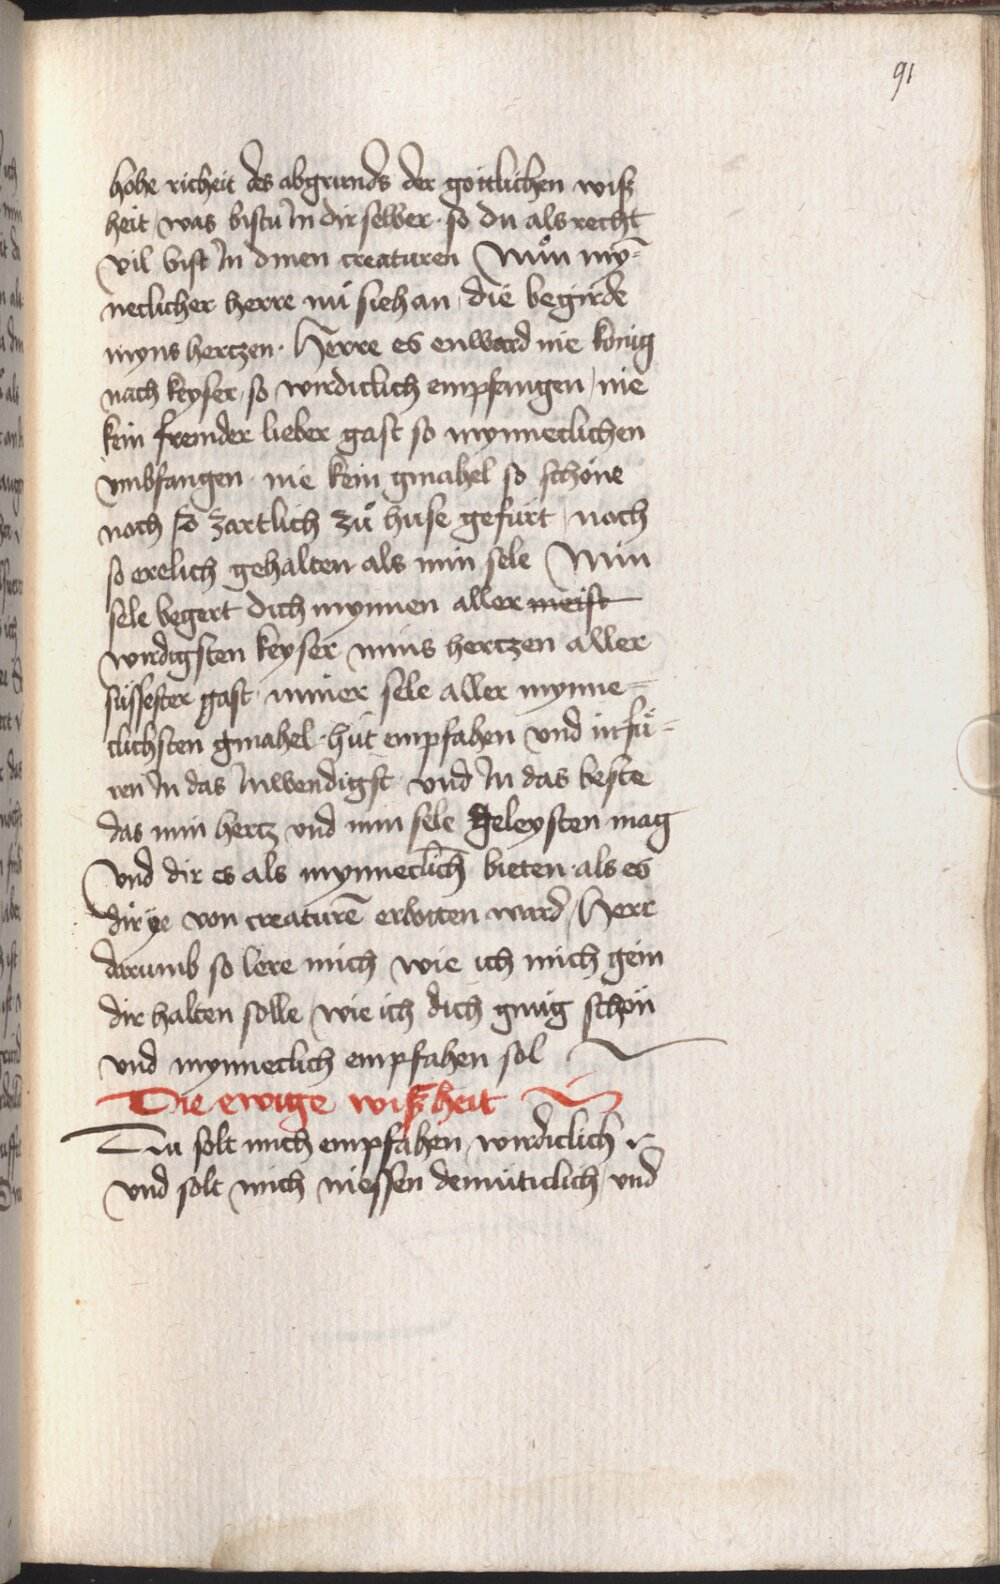 91
hohe richeit des abgrunds der gottlichen wiß
heit / was bistu in dir selber · so du als recht
vil bist in dinen creaturen Nuͦn my̅=
neclicher herre nuͦ sieh an die begirde
myns hertzen · Herre es enward nie könig
nach keyser, so wirdiclich empfangen / nie
kein fremder lieber gast so mynneclichen
vmbfangen · nie kein gmahel so schöne
noch so zartlich zuͦ huse gefürt / noch
so erelich gehalten als min sele Min
sele begert dich mynnen aller meist
wirdigsten keyser mins hertzen aller
süssester gast · miner sele aller mynne=
clichsten gmahel · hüt empfahen vnd in fuͤ=
ren in das inwendigst vnd in das beste
das min hertz vnd min sele geleysten mag
Vnd dir es als mynneclich bieten · als es
dir ye von creature̅ erbotten ward / Herr
darumb so lere mich wie ich mich gein
dir halten solle / wie ich dich gnüg schön
vnd mynneclich empfahen sol
Die ewige wißheit
Du solt mich empfahen wirdiclich
vnd solt mich niessen demüticlich / vnd